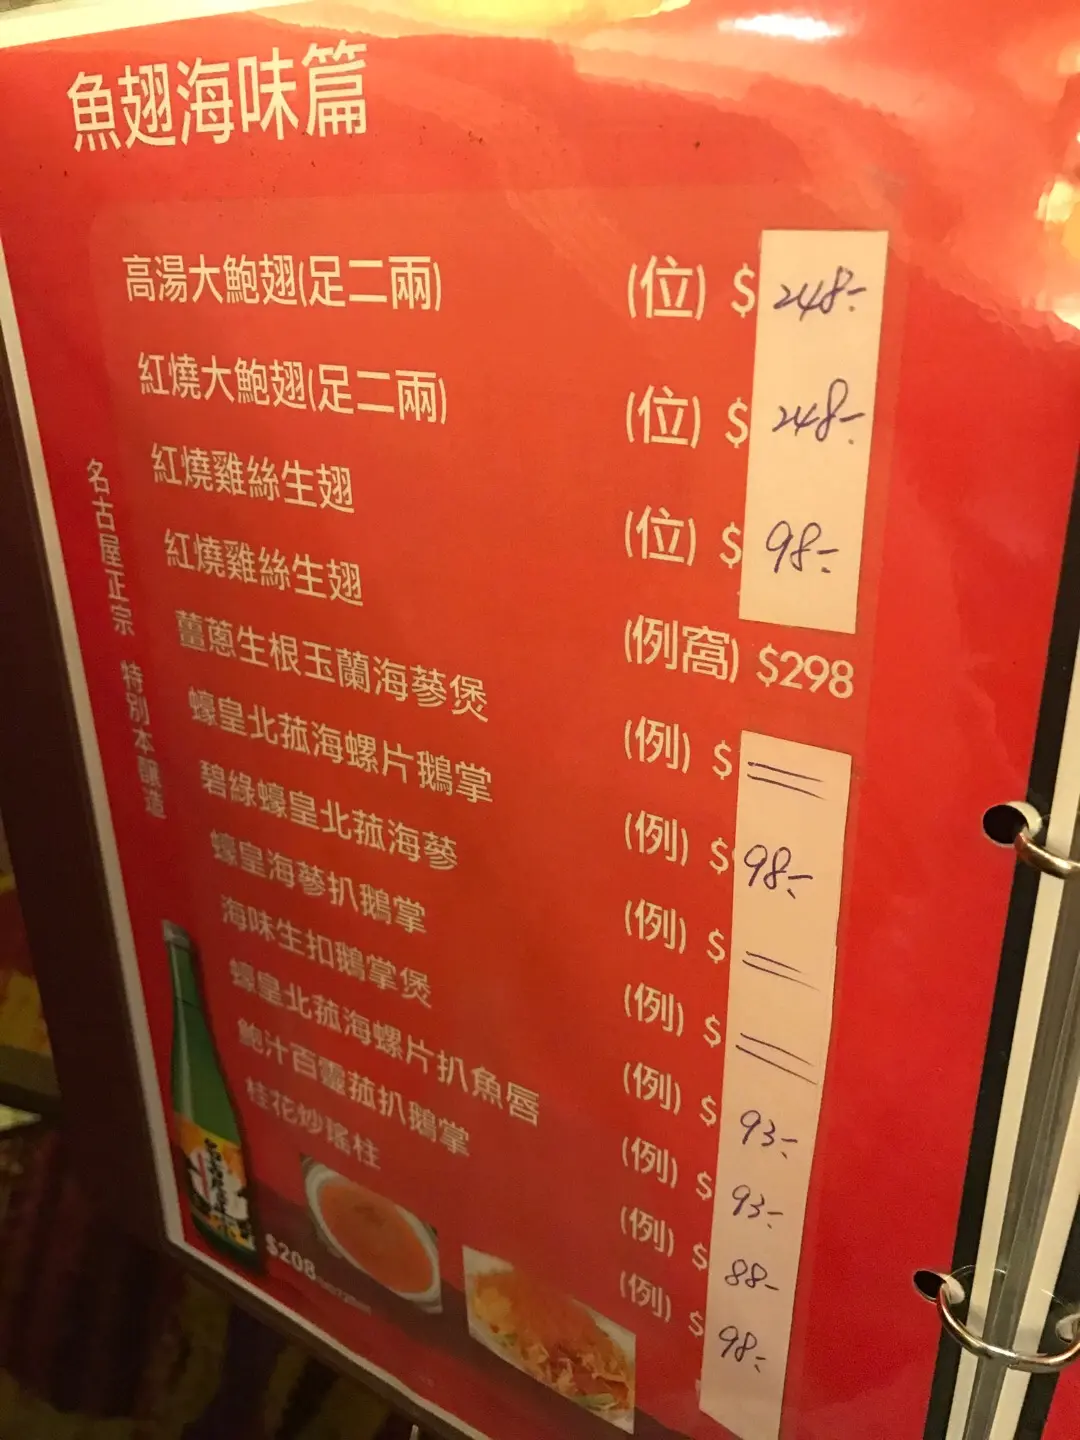 魚翅海味篇
高湯大鮑翅(足二兩) (位) $ 248-
紅燒大鮑翅(足二兩) (位) $ 248-
紅燒雞絲生翅 (位) $ 98-
紅燒雞絲生翅 (例窩) $298
薑蔥生根玉蘭海蔘煲 (例) $
蠔皇北菰海螺片鵝掌 (例) $ 98-
碧綠蠔皇北菰海蔘 (例) $
蠔皇海蔘扒鵝掌 (例) $
海味生扣鵝掌煲 (例) $ 93-
蠔皇北菰海螺片扒魚唇 (例) $ 93-
鮑汁百靈菰扒鵝掌 (例) $ 88-
桂花炒瑤柱 (例) $ 98-
名古屋正宗 特別本釀造
$208